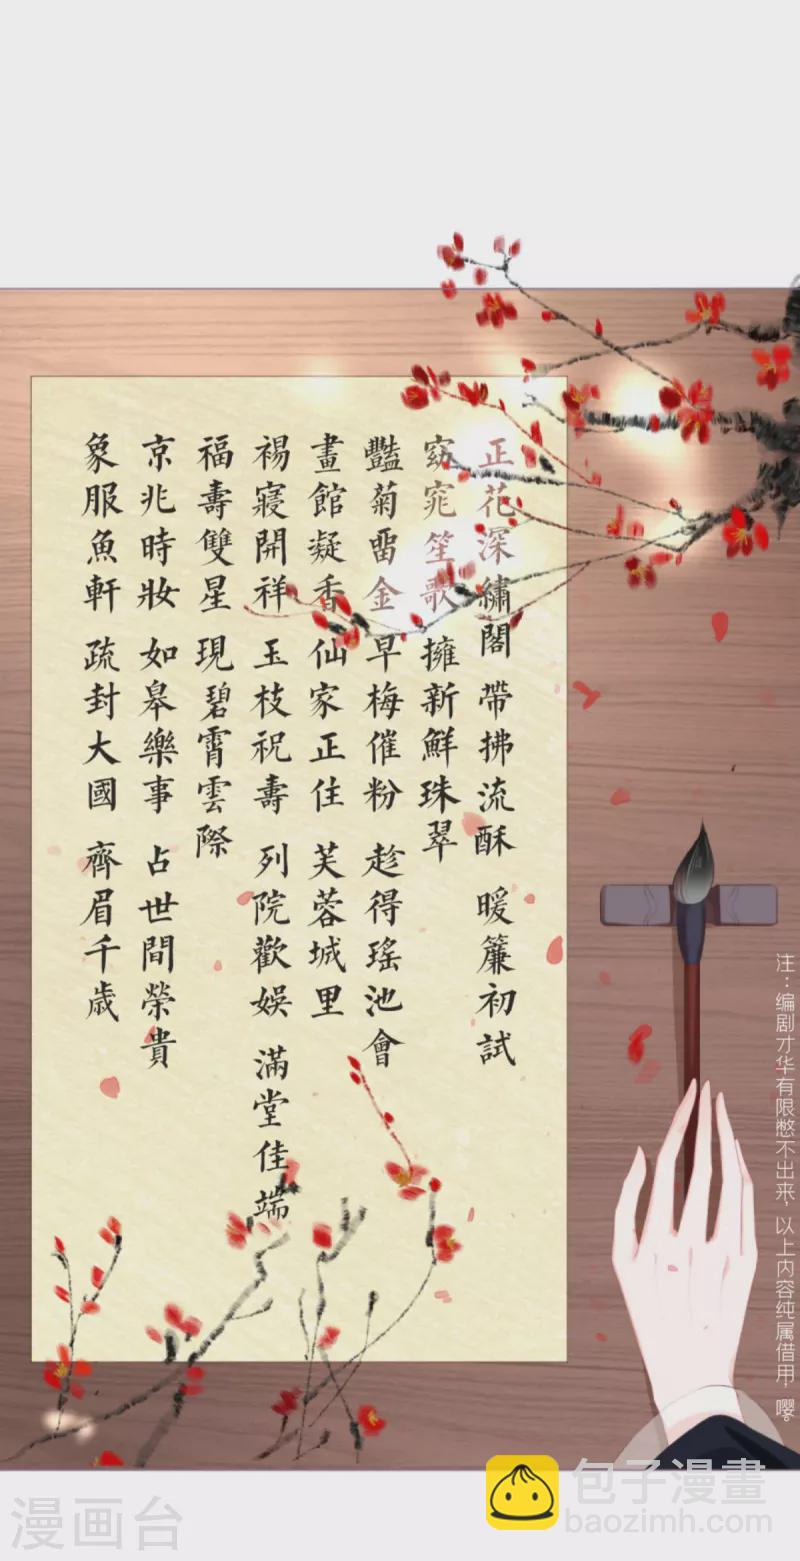 正花深繡閣 帶拂流酥 暖簾初試
窈窕笙歌 擁新鮮珠翠
豔菊畱金 早梅催粉 趁得瑤池會
畫館凝香 仙家正住 芙蓉城里
裼寢開祥 玉枝祝壽 列院歡娛 滿堂佳端
福壽雙星 現碧霄雲際
京兆時妝 如皋樂事 占世間榮貴
象服魚軒 疏封大國 齊眉千歲
注：编剧才华有限憋不出来，以上内容纯属借用，嘤。
漫画台
包子漫畫
baozimh.com